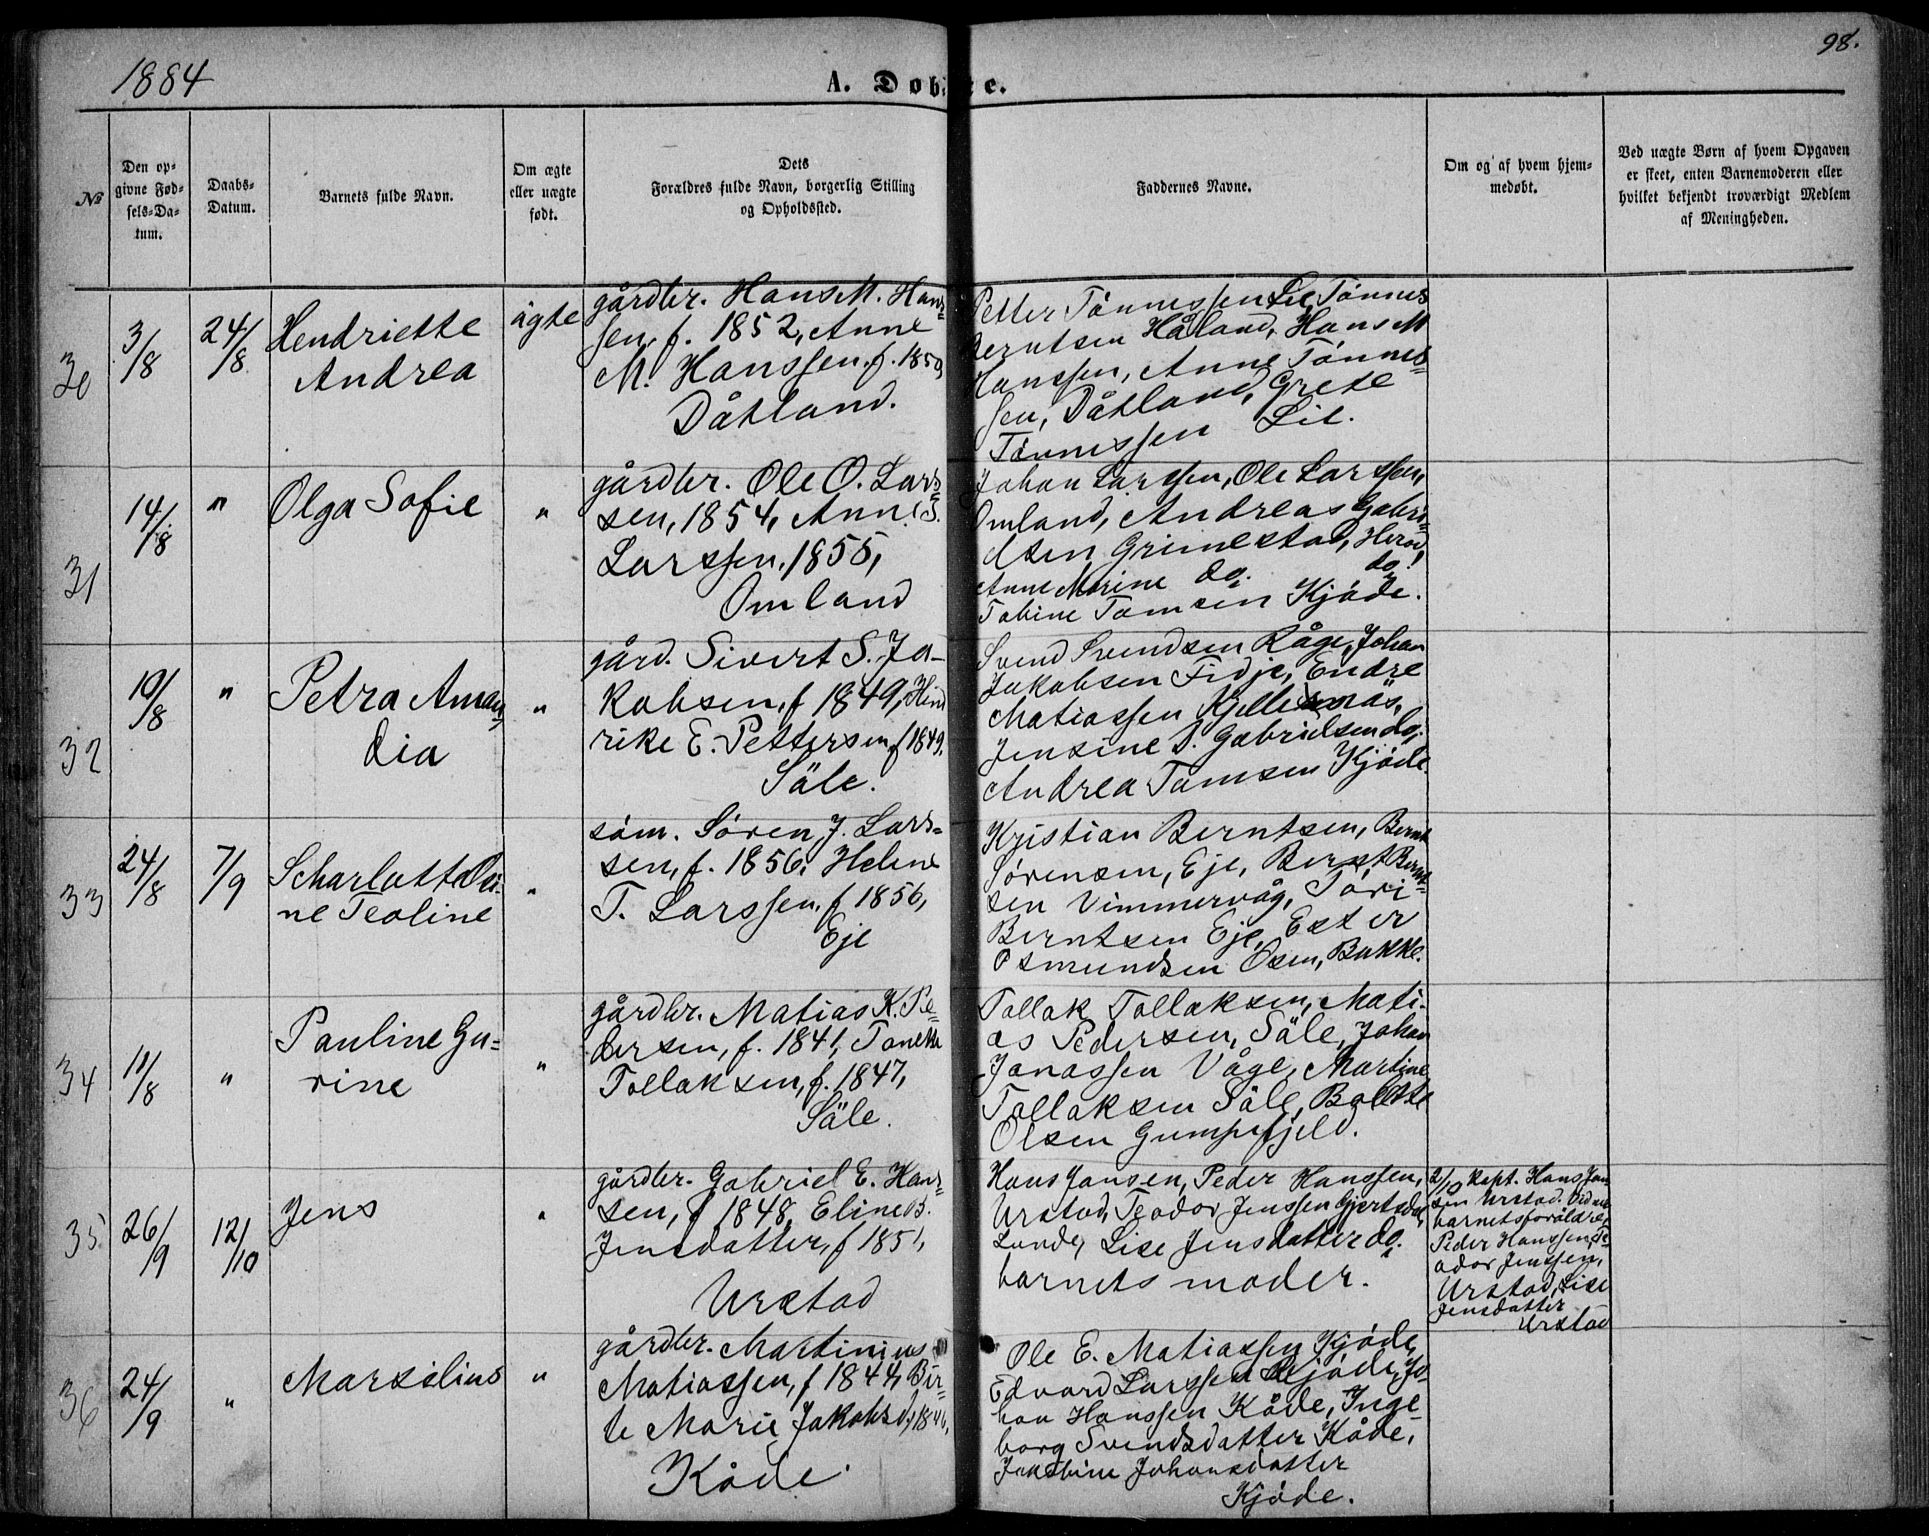 1884
A. Døbte.
98.
№
Den op-
givne Fød-
sels-Da-
tum.
Daabs-
Datum.
Barnets fulde Navn.
Om ægte
eller uægte
født.
Dets
Forældres fulde Navn, borgerlig Stilling
og Opholdssted.
Faddernes Navne.
Om og af hvem hjem-
medøbt.
Ved uægte Børn af hvem Opgaven
er skeet, enten Barnemoderen eller
hvilket bekjendt troværdigt Medlem
af Menigheden.
30
3/8
24/8
Hendriette
Andrea
ägte
gårdbr. Hans M. Hans-
sen, f. 1852, Anne
M. Hanssen, f. 1850,
Dåtland.
Petter Tønnessen Lie, Tønnes
Berntsen Håland, Hans M
Hanssen, Anne Tønnes-
sen, Dåtland, Grete
Tønnessen Lie.
31
14/8
"
Olga Sofie
"
gårdbr. Ole O. Lars-
sen, 1854, Anne S.
Larssen, 1855,
Omland
Johan Larssen, Ole Larssen,
Omland, Andreas Gabri-
elsen Grimestad, Herød,
Anne Marine do. do.
Tobine Tomsen Kjøde.
32
10/8
"
Petra Aman-
dia
"
gård. Sivert S. Ja-
kobsen, f 1849, Hind
rike E. Pettersen, f 1849,
Säle.
Svend Svendsen Råge, Johan
Jakobsen Fidje, Endre
Matiassen Kjellesnäs,
Jensine S. Gabrielsen do,
Andrea Tomsen Kjøde.
33
24/8
7/9
Scharlotte Oli-
ne Teoline
"
søm. Søren J. Lars-
sen, f. 1856, Helene
T. Larssen, f 1856,
Eje
Kristian Berntsen, Bernt
Sørensen, Eje, Bernt Bernt-
sen Vimmervåg, Tori
Berntsen Eje, Ester
Osmundsen Osen, Bakke.
34
11/8
"
Pauline Gu-
rine
"
gårdbr. Matias K. Pe-
dersen, f. 1841, Tonette
Tollaksen, f. 1847,
Säle.
Tollak Tollaksen, Mati-
as Pedersen, Säle, Johan
Jonassen Våge, Martine
Tollaksen Säle, Bolette
Olsen Gumpefjeld.
35
26/9
12/10
Jens
"
gårdbr. Gabriel E. Hans-
sen, f 1848, Eline B.
Jensdatter, f 1851,
Urstad
Hans Jansen, Peder Hanssen,
Urstad, Teodor Jenssen
Lunde, Lise Jensdatter do.
barnets moder.
2/10 Hans Jan
sen Urstad. Vidner
barnets foräldre,
Peder Hanssen, Te-
odor Jenssen,
Urstad, Lise
Jensdatter
Urstad
36
24/9
"
Marselius
"
gårdbr. Martinius
Matiassen, f 1844, Bir-
te Marie Jakobsd,
Kåde.
Ole E. Matiassen Kjøde,
Edvard Larssen Kjøde, Jo-
han Hanssen Kåde, Inge-
borg Svendsdatter Kåde,
Jakobine Johansdatter
Kjøde.